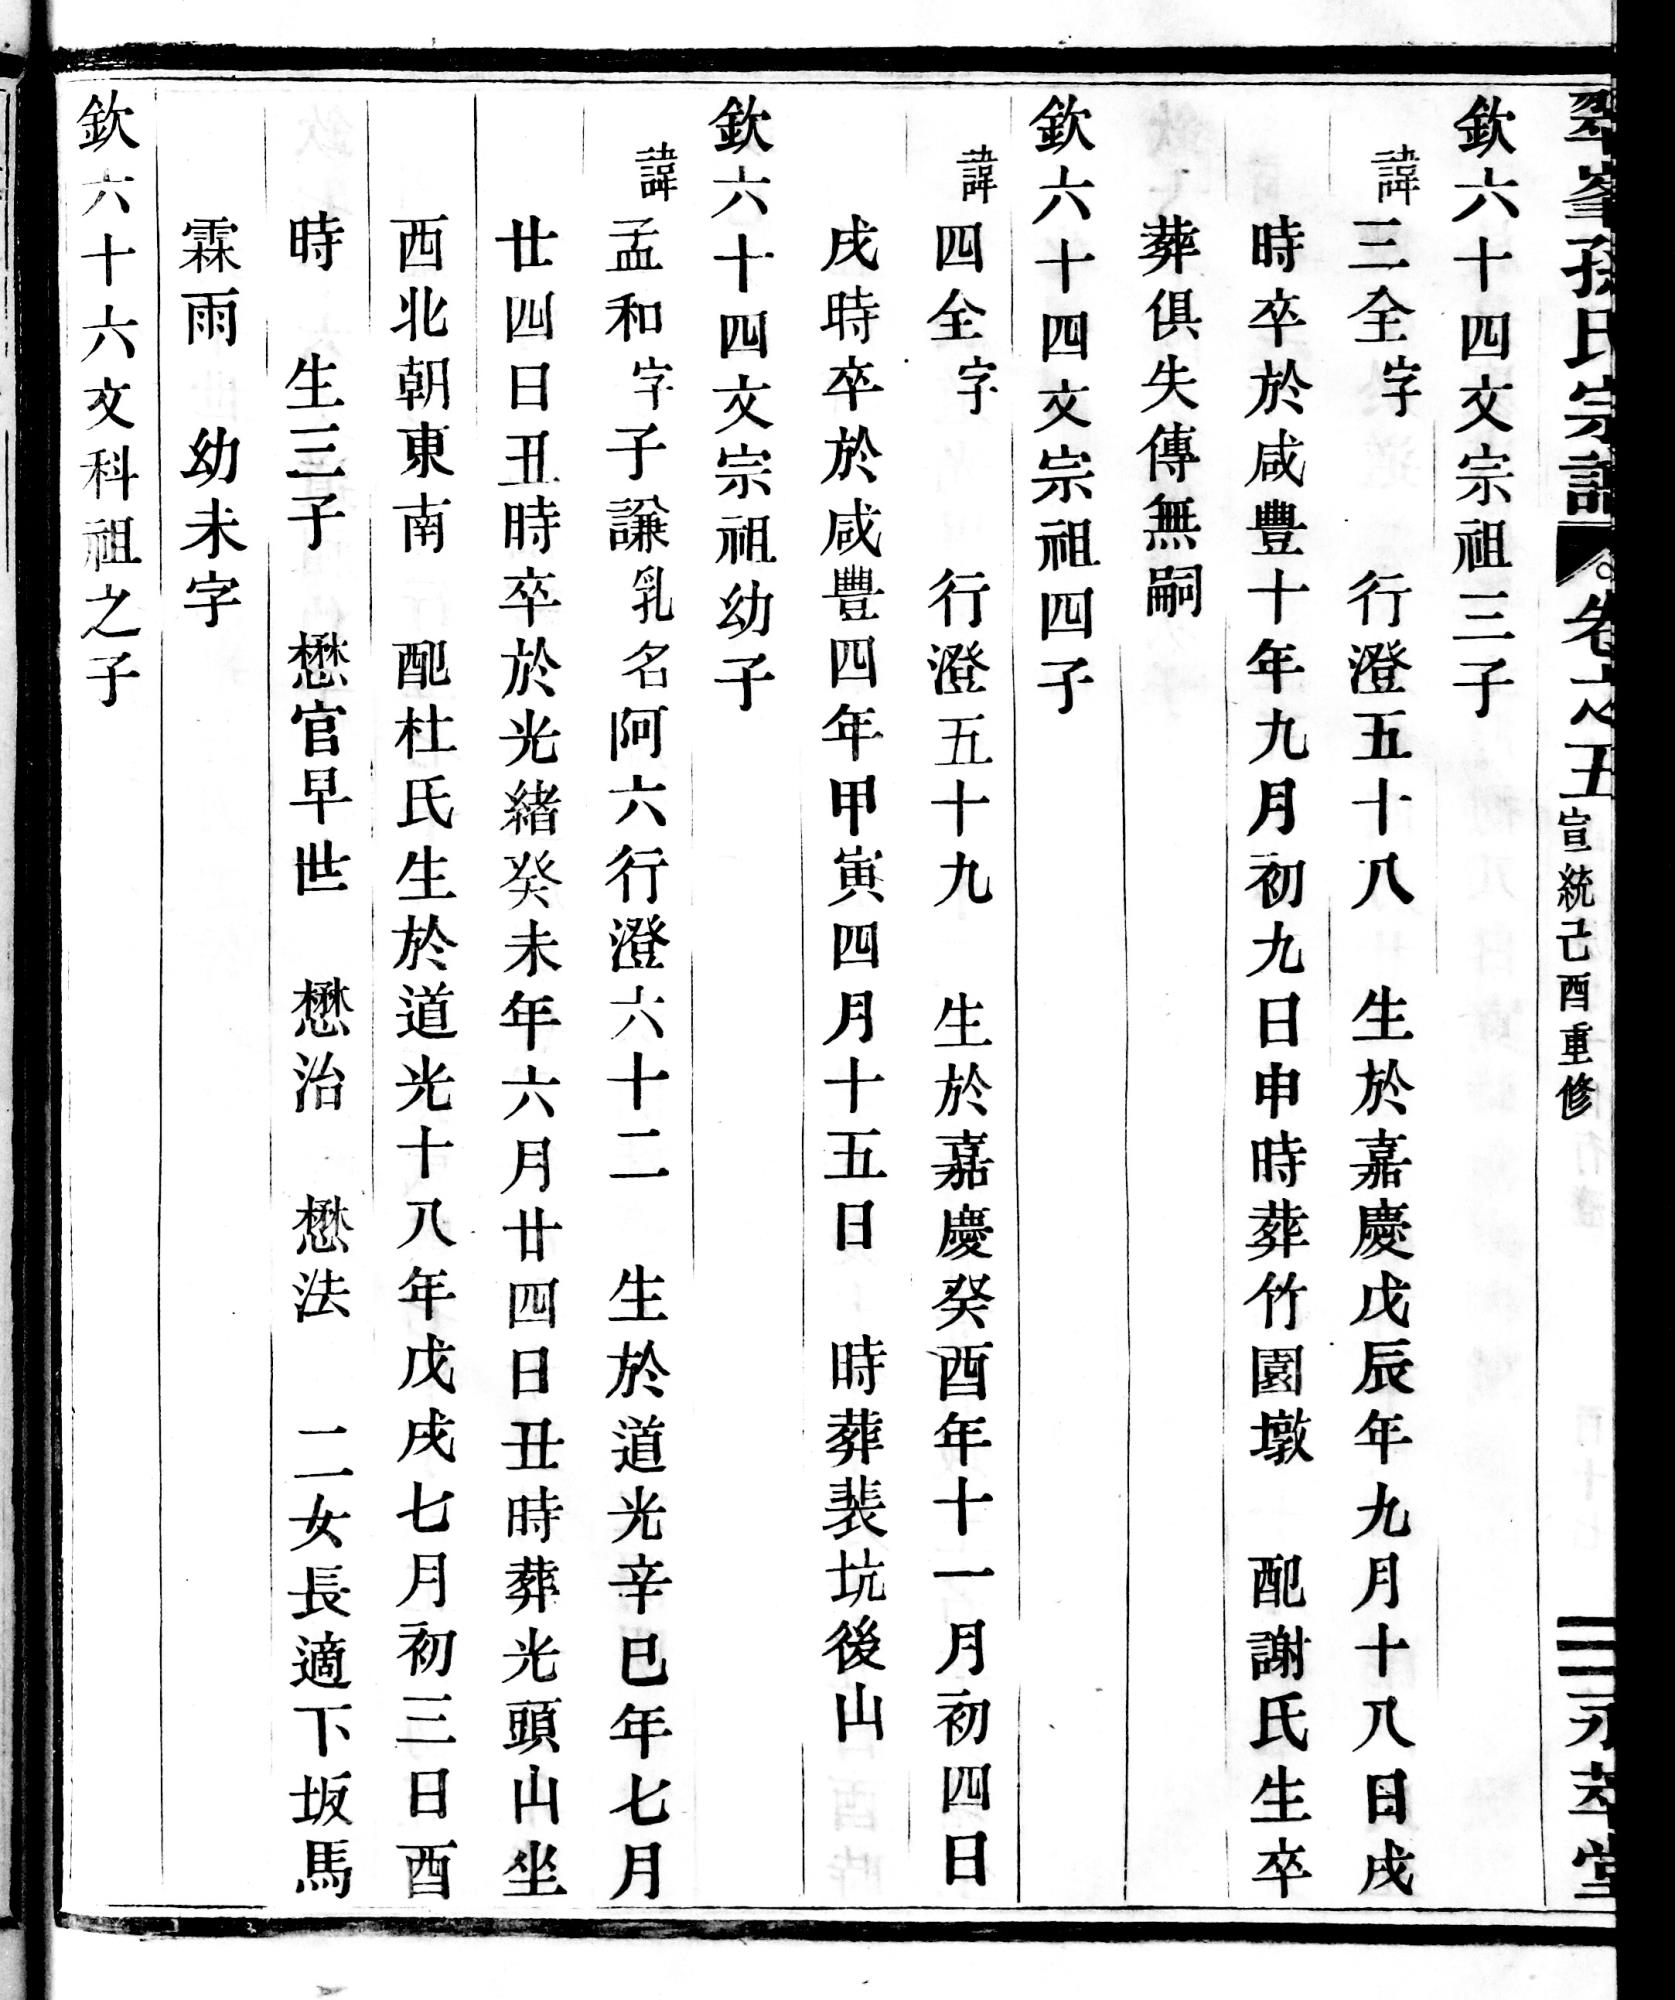 翠峯孫氏宗譜 卷之五 宣統己酉重修 永萃堂
欽六十四文宗祖三子
諱三全字 行澄五十八 生於嘉慶戊辰年九月十八日戌
時卒於咸豐十年九月初九日申時葬竹園墩 配謝氏生卒
葬俱失傳無嗣
欽六十四文宗祖四子
諱四全字 行澄五十九 生於嘉慶癸酉年十一月初四日
戌時卒於咸豐四年甲寅四月十五日 時葬裴坑後山
欽六十四文宗祖幼子
諱孟和字子謙乳名阿六行澄六十二 生於道光辛巳年七月
廿四日丑時卒於光緒癸未年六月廿四日丑時葬光頭山坐
西北朝東南 配杜氏生於道光十八年戊戌七月初三日酉
時 生三子 懋官早世 懋治 懋法 二女長適下坂馬
霖雨 幼未字
欽六十六文科祖之子